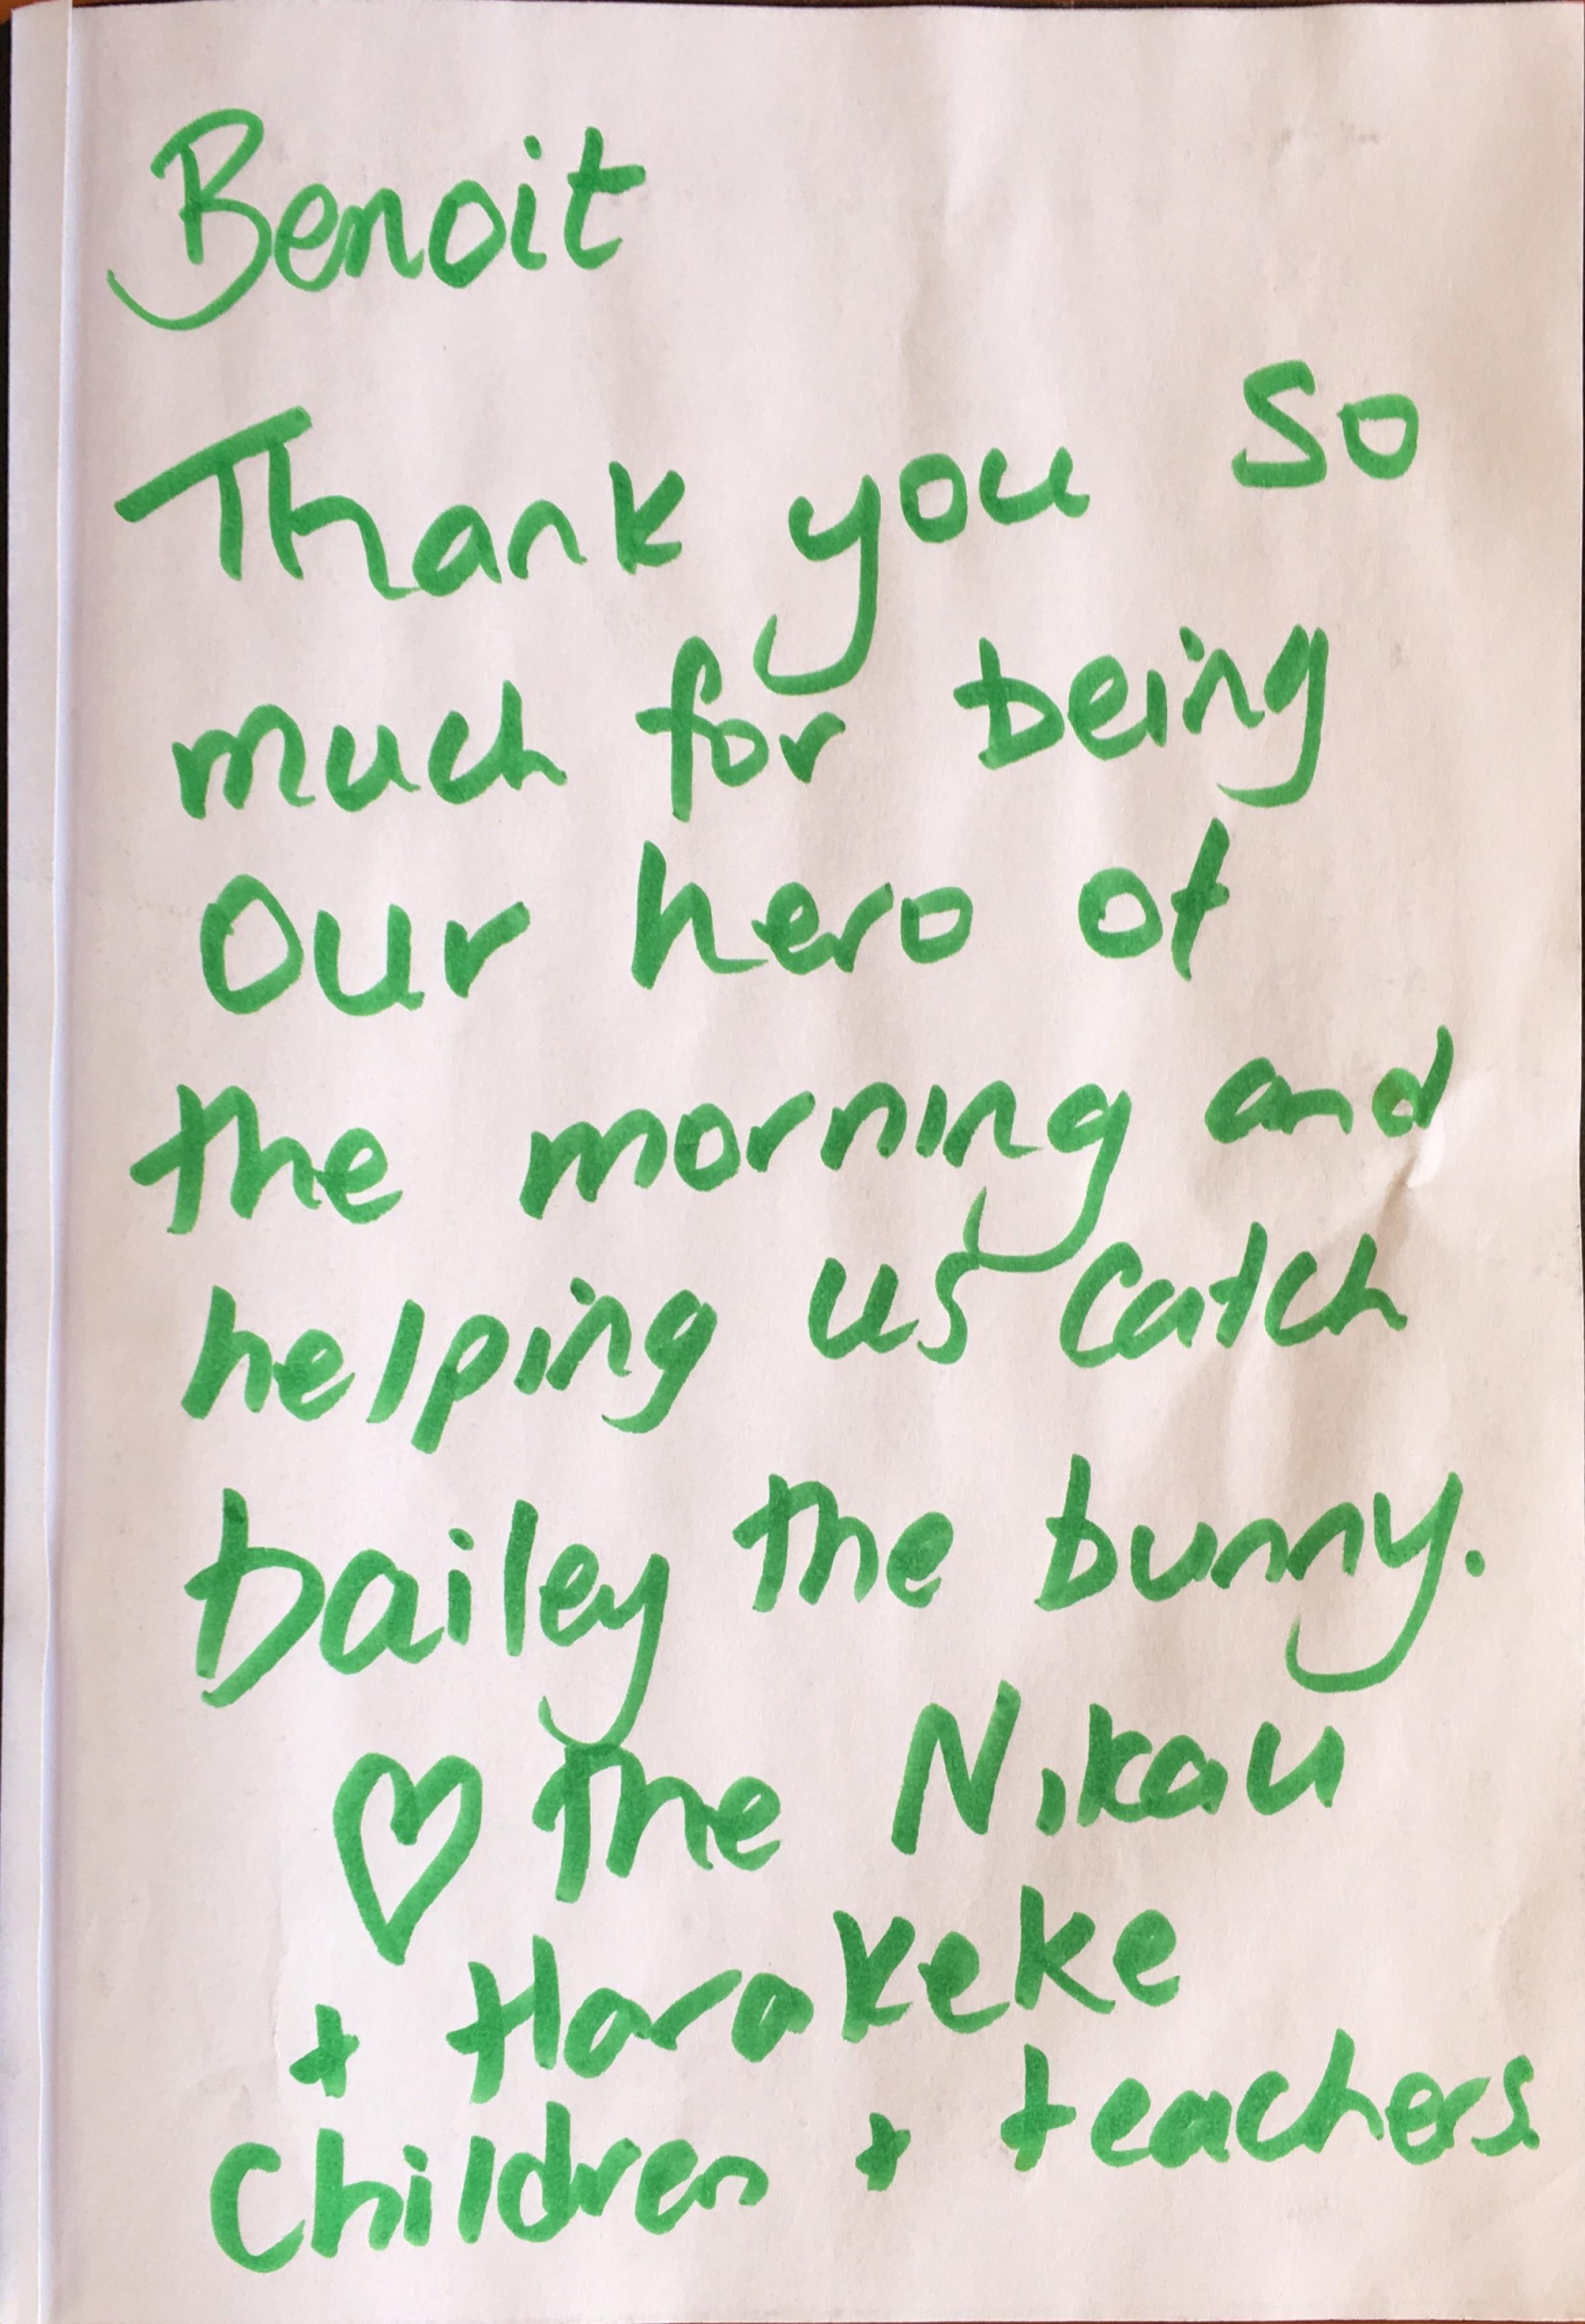 Benoit
Thank you so
much for being
Our hero of
the morning and
helping us catch
bailey the bunny.
♡ The Nikau
+ Harakeke
Children + teachers